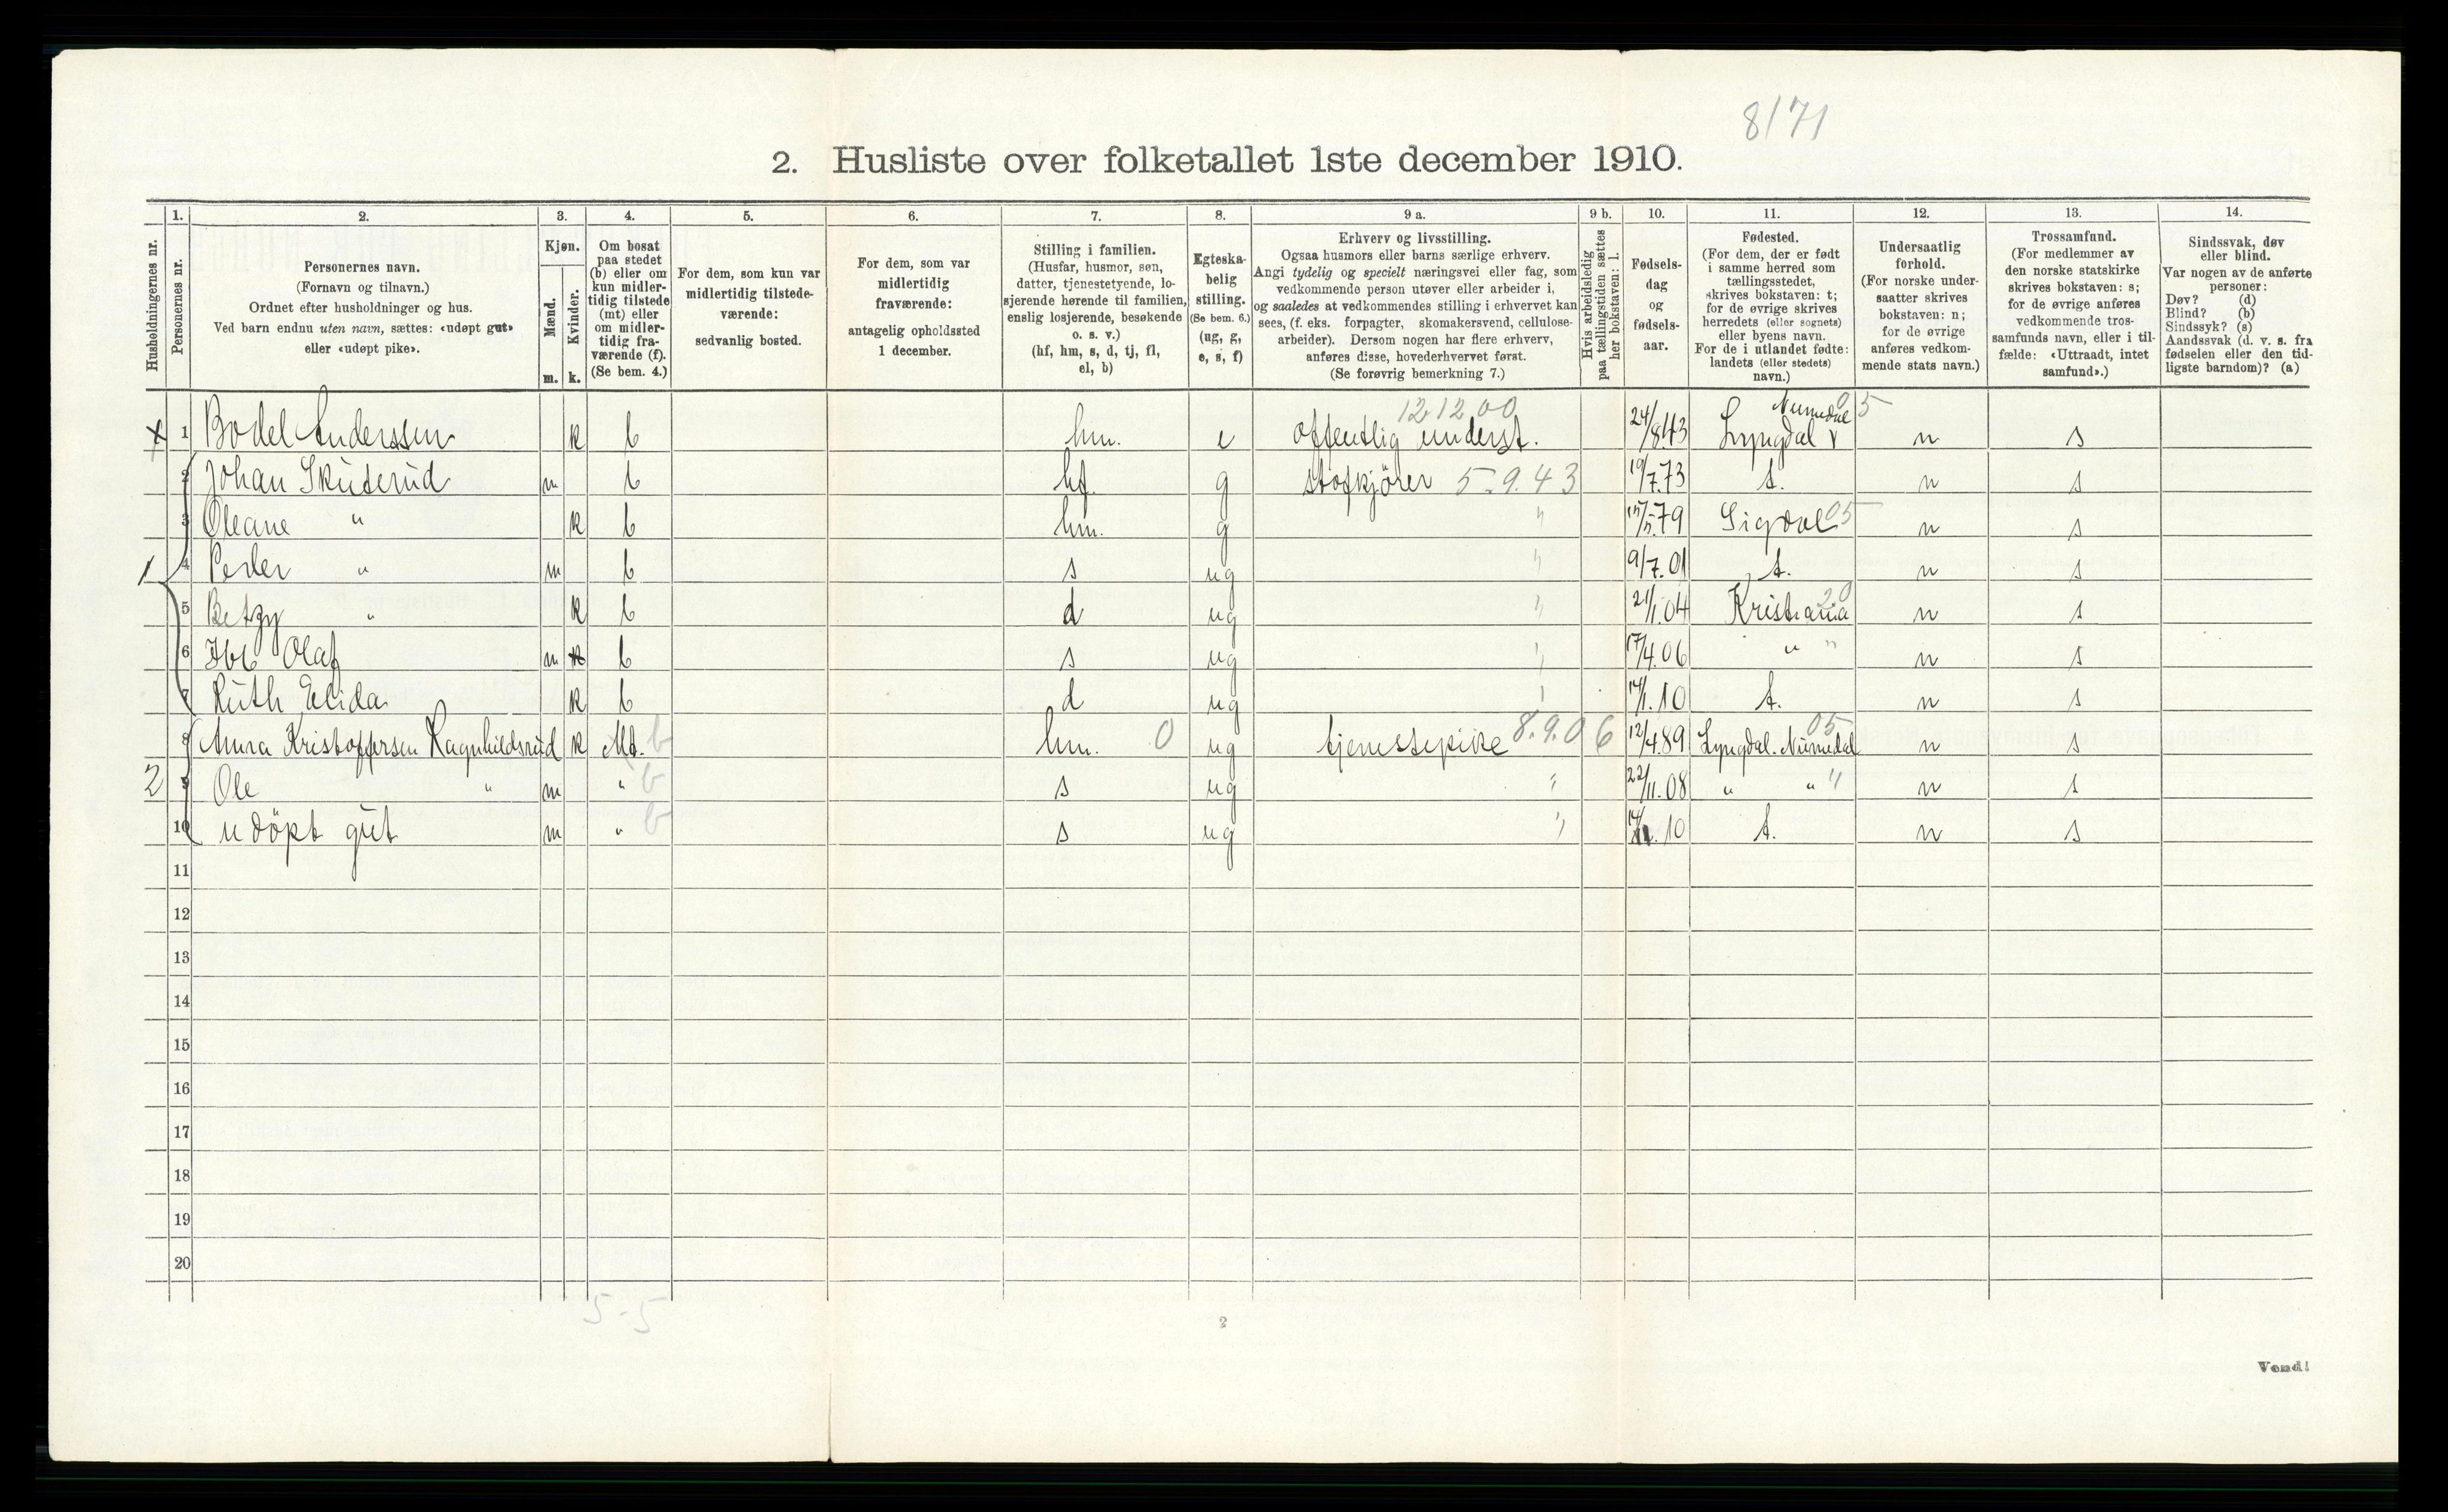 8/71
2. Husliste over folketallet 1ste december 1910.
1. 2. 3. 4. 5. 6. 7. 8. 9 a. 9 b. 10. 11. 12. 13. 14.
Husholdningernes nr.
Personernes nr.
Personernes navn.
(Fornavn og tilnavn.)
Ordnet efter husholdninger og hus.
Ved barn endnu uten navn, sættes: «udøpt gut»
eller «udøpt pike».
Kjøn.
Mænd.
m.
Kvinder.
k.
Om bosat
paa stedet
(b) eller om
kun midler-
tidig tilstede
(mt) eller
om midler-
tidig fra-
værende (f).
(Se bem. 4.)
For dem, som kun var
midlertidig tilstede-
værende:
sedvanlig bosted.
For dem, som var
midlertidig
fraværende:
antagelig opholdssted
1 december.
Stilling i familien.
(Husfar, husmor, søn,
datter, tjenestetyende, lo-
sjerende hørende til familien,
enslig losjerende, besøkende
o. s. v.)
(hf, hm, s, d, tj, fl,
el, b)
Egteska-
belig
stilling.
(Se bem. 6.)
(ug, g,
e, s, f)
Erhverv og livsstilling.
Ogsaa husmors eller barns særlige erhverv.
Angi tydelig og specielt næringsvei eller fag, som
vedkommende person utøver eller arbeider i,
og saaledes at vedkommendes stilling i erhvervet kan
sees, (f. eks. forpagter, skomakersvend, cellulose-
arbeider). Dersom nogen har flere erhverv,
anføres disse, hovederhvervet først.
(Se forøvrig bemerkning 7.)
Hvis arbeidsledig
paa tællingstiden sættes
her bokstaven: l.
Fødsels-
dag
og
fødsels-
aar.
Fødested.
(For dem, der er født
i samme herred som
tællingsstedet,
skrives bokstaven: t;
for de øvrige skrives
herredets (eller sognets)
eller byens navn.
For de i utlandet fødte:
landets (eller stedets)
navn.)
Undersaatlig
forhold.
(For norske under-
saatter skrives
bokstaven: n;
for de øvrige
anføres vedkom-
mende stats navn.)
Trossamfund.
(For medlemmer av
den norske statskirke
skrives bokstaven: s;
for de øvrige anføres
vedkommende tros-
samfunds navn, eller i til-
fælde: «Uttraadt, intet
samfund».)
Sindssvak, døv
eller blind.
Var nogen av de anførte
personer:
Døv? (d)
Blind? (b)
Sindssyk? (s)
Aandssvak (d. v. s. fra
fødselen eller den tid-
ligste barndom)? (a)
121200 Numedal 05
x 1 Bodel Anderssen k b hm. e offentlig underst. 24/8.43 Lyngdal n s
2 Johan Skuterud m b hf. g 5.9.43 19/7.73 t. n s
3 Oleane " k b hm. g " 15/5.79 Sigdal 05 n s
1 4 Peder " m b s ug " 9/7.01 t. n s
5 Betzy " k b d ug " 21/1.04 Kristiania 20 n s
6 Olaf m k b s ug " 17/4.06 " " n s
7 Ruth Elida k b d ug " 14/1.10 t. n s
8 Anna Kristoffersen Ragnhildsrud k Mt. b hm. 0 ug tjenestepike 8.9.06 12/4.89 Lyngdal. Numedal 05 n s
2 9 Ole " m " b s ug " 22/11.08 " " " n s
10 udöpt gut m " b s ug " 14/11.10 t. n s
11
12
13
14
15
16
17
18
19
20
5-5
2
Vend!